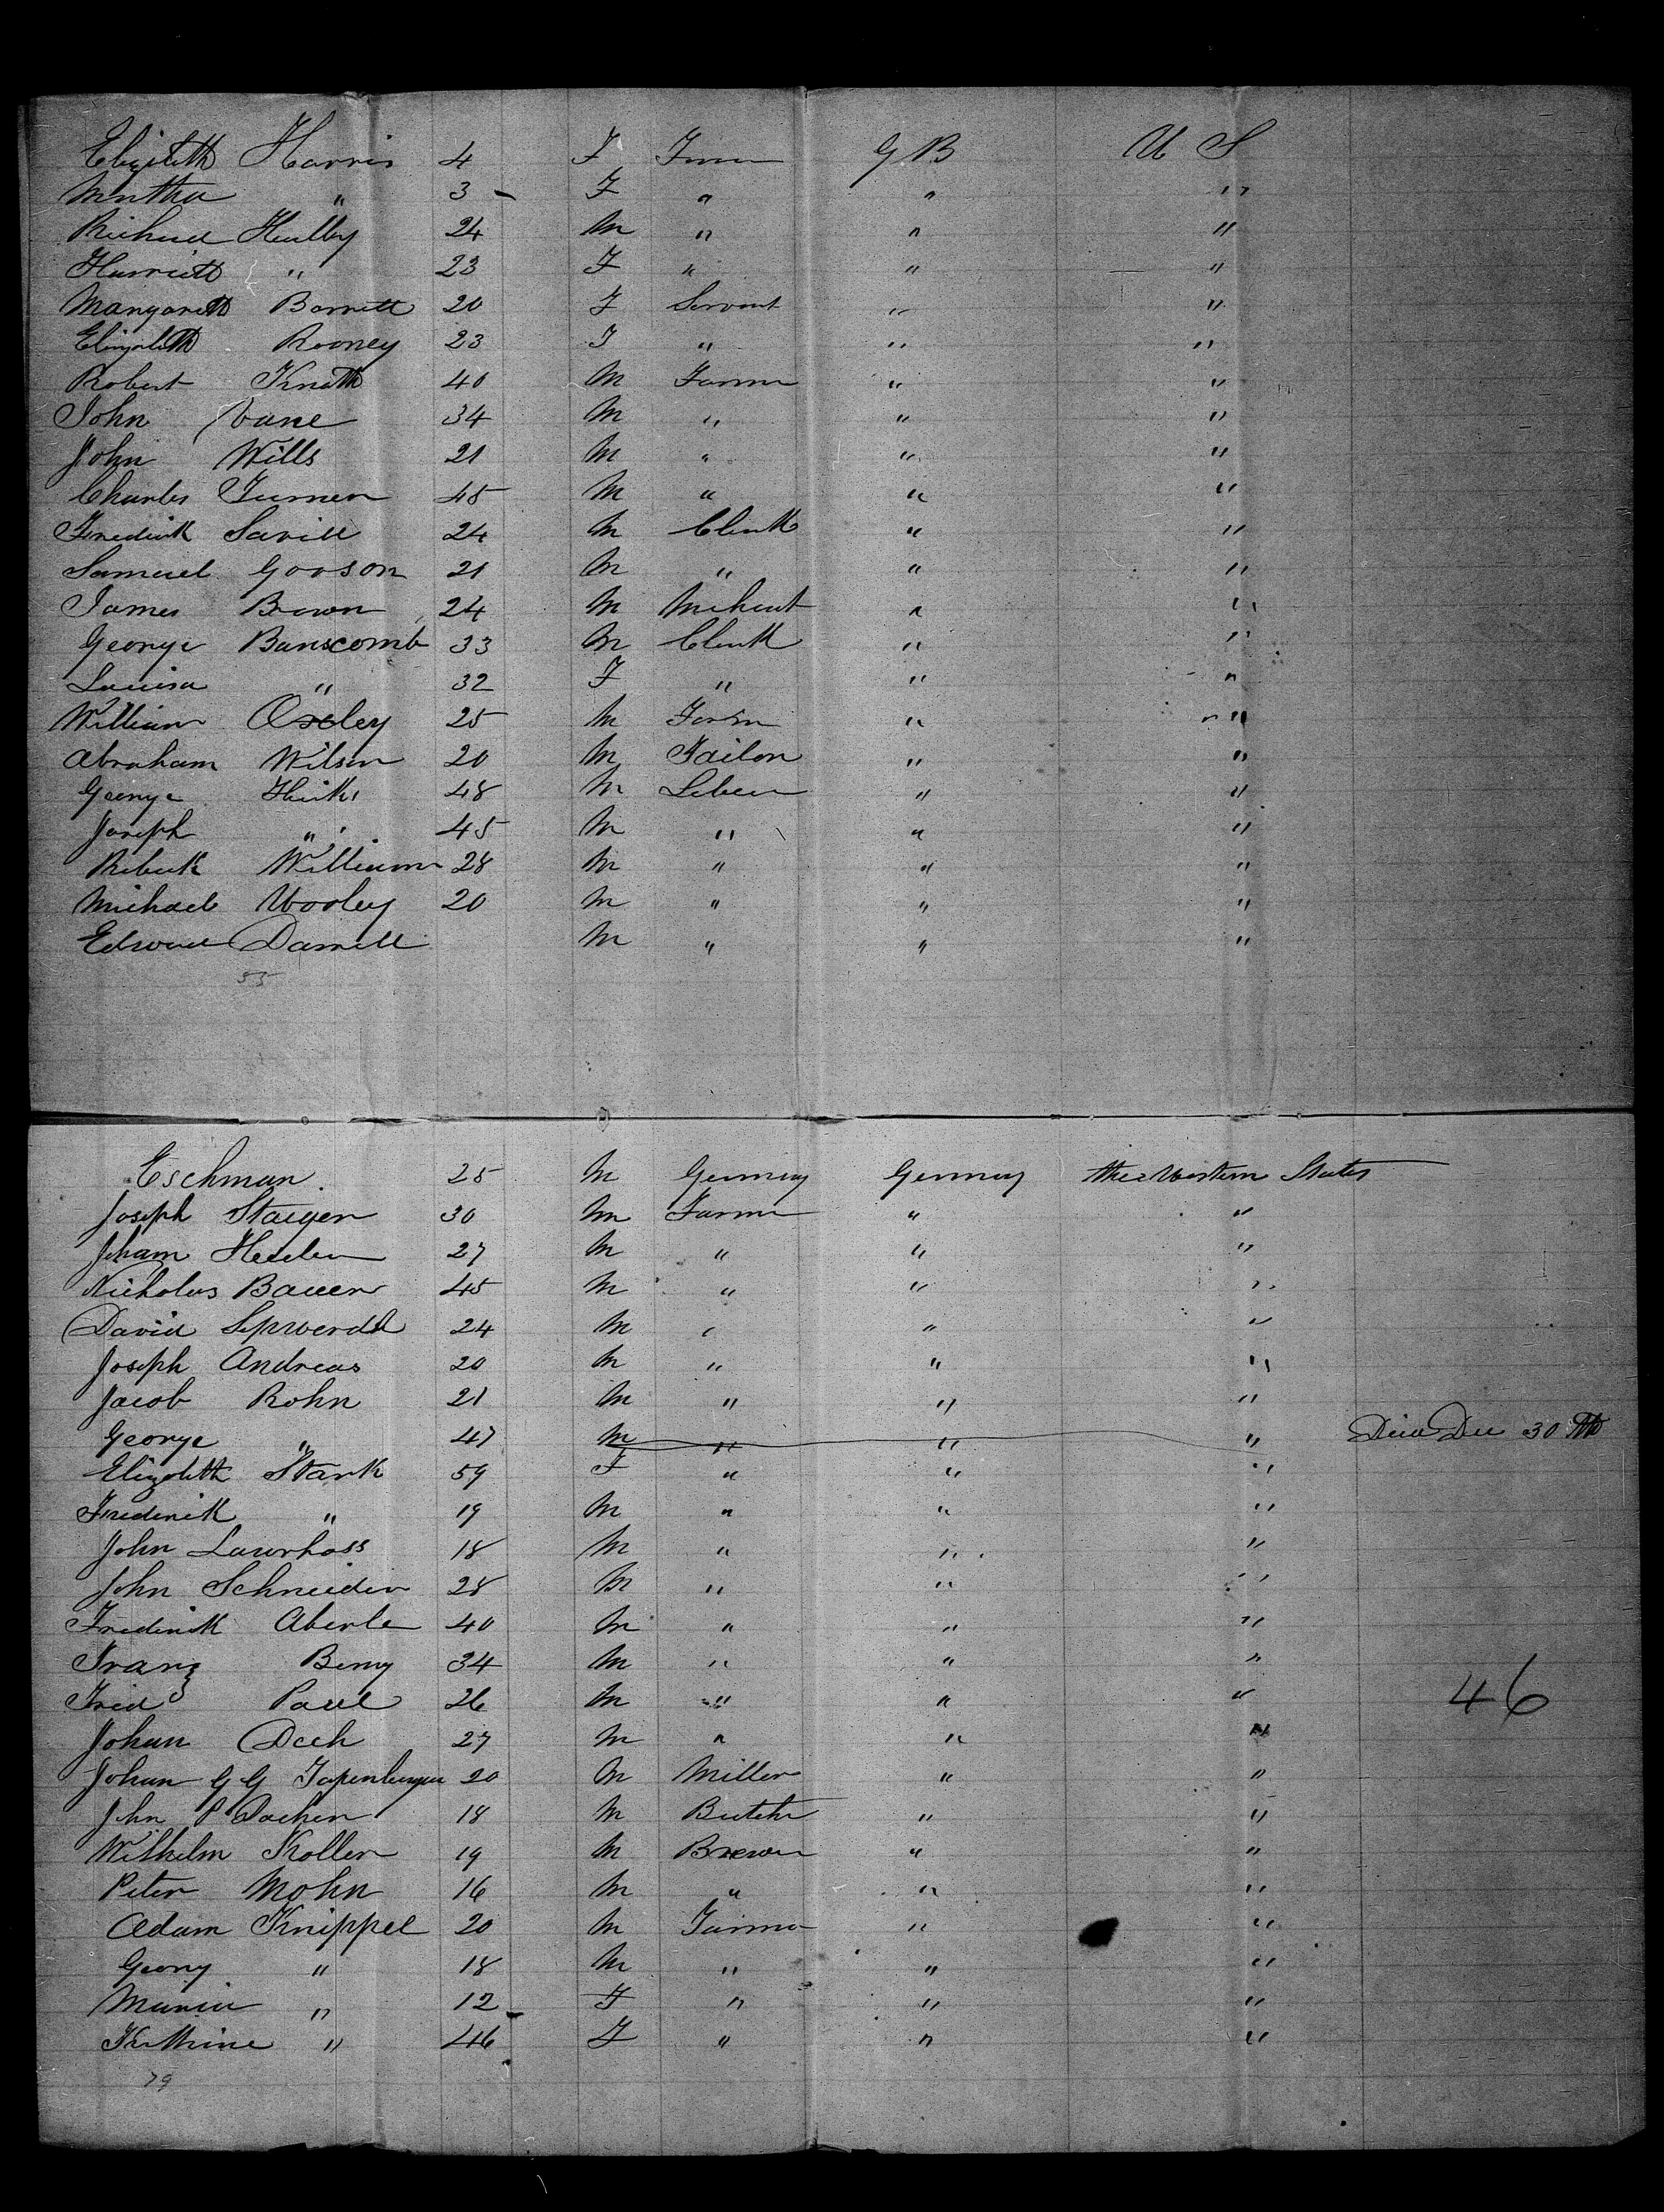 Elizabeth Harris 4 F Farm G B U S
Martha " 3 - F " " "
Richard Hulby 24 M " " "
Harriett " 23 F " " "
Margarett Barrett 20 F Servant " "
Elizabeth Rooney 23 F " " "
Robert Knath 40 M Farmer " "
John Vane 34 M " " "
John Wills 21 M " " "
Charles Turner 45 M " " "
Frederick Savill 24 M Clerk " "
Samuel Gooson 21 M " " "
James Brown 24 M Mechant " "
George Banscomb 33 M Clerk " "
Louisa " 32 F " " "
William Oxley 25 M Farm " "
Abraham Wilson 20 M Tailor " "
George Hicks 48 M Laber " "
Joseph " 45 M " " "
William 28 M " " "
Michael Wooley 20 M " " "
Edward Darnell M " " "
55
Eschman 25 M Germany Germany the Western States
Joseph Staiger 30 M Farmer " "
27 M " " "
Nicholas Bauer 45 M " " "
David 24 M " " "
Joseph Andreas 20 M " " "
Jacob Rohn 21 M " " "
George " 47 M " " " Died Dec 30 th
Elizabeth Stark 59 F " " "
Frederick " 19 M " " "
John Lawrhass 18 M " " "
John Schneider 28 M " " "
Frederick Aberle 40 M " " "
Franz Berny 34 M " " "
Fried Paul 26 M " " "
46
Johan Dech 27 M " " "
Johan G G 20 M Miller " "
John P Dacher 18 M Butcher " "
Wilhelm Koller 19 M Brewer " "
Peter Mohn 16 M " " "
Adam Knippel 20 M Farmer " "
Georg " 18 M " " "
Maria " 12 - F " " "
Kathrine " 46 F " " "
79